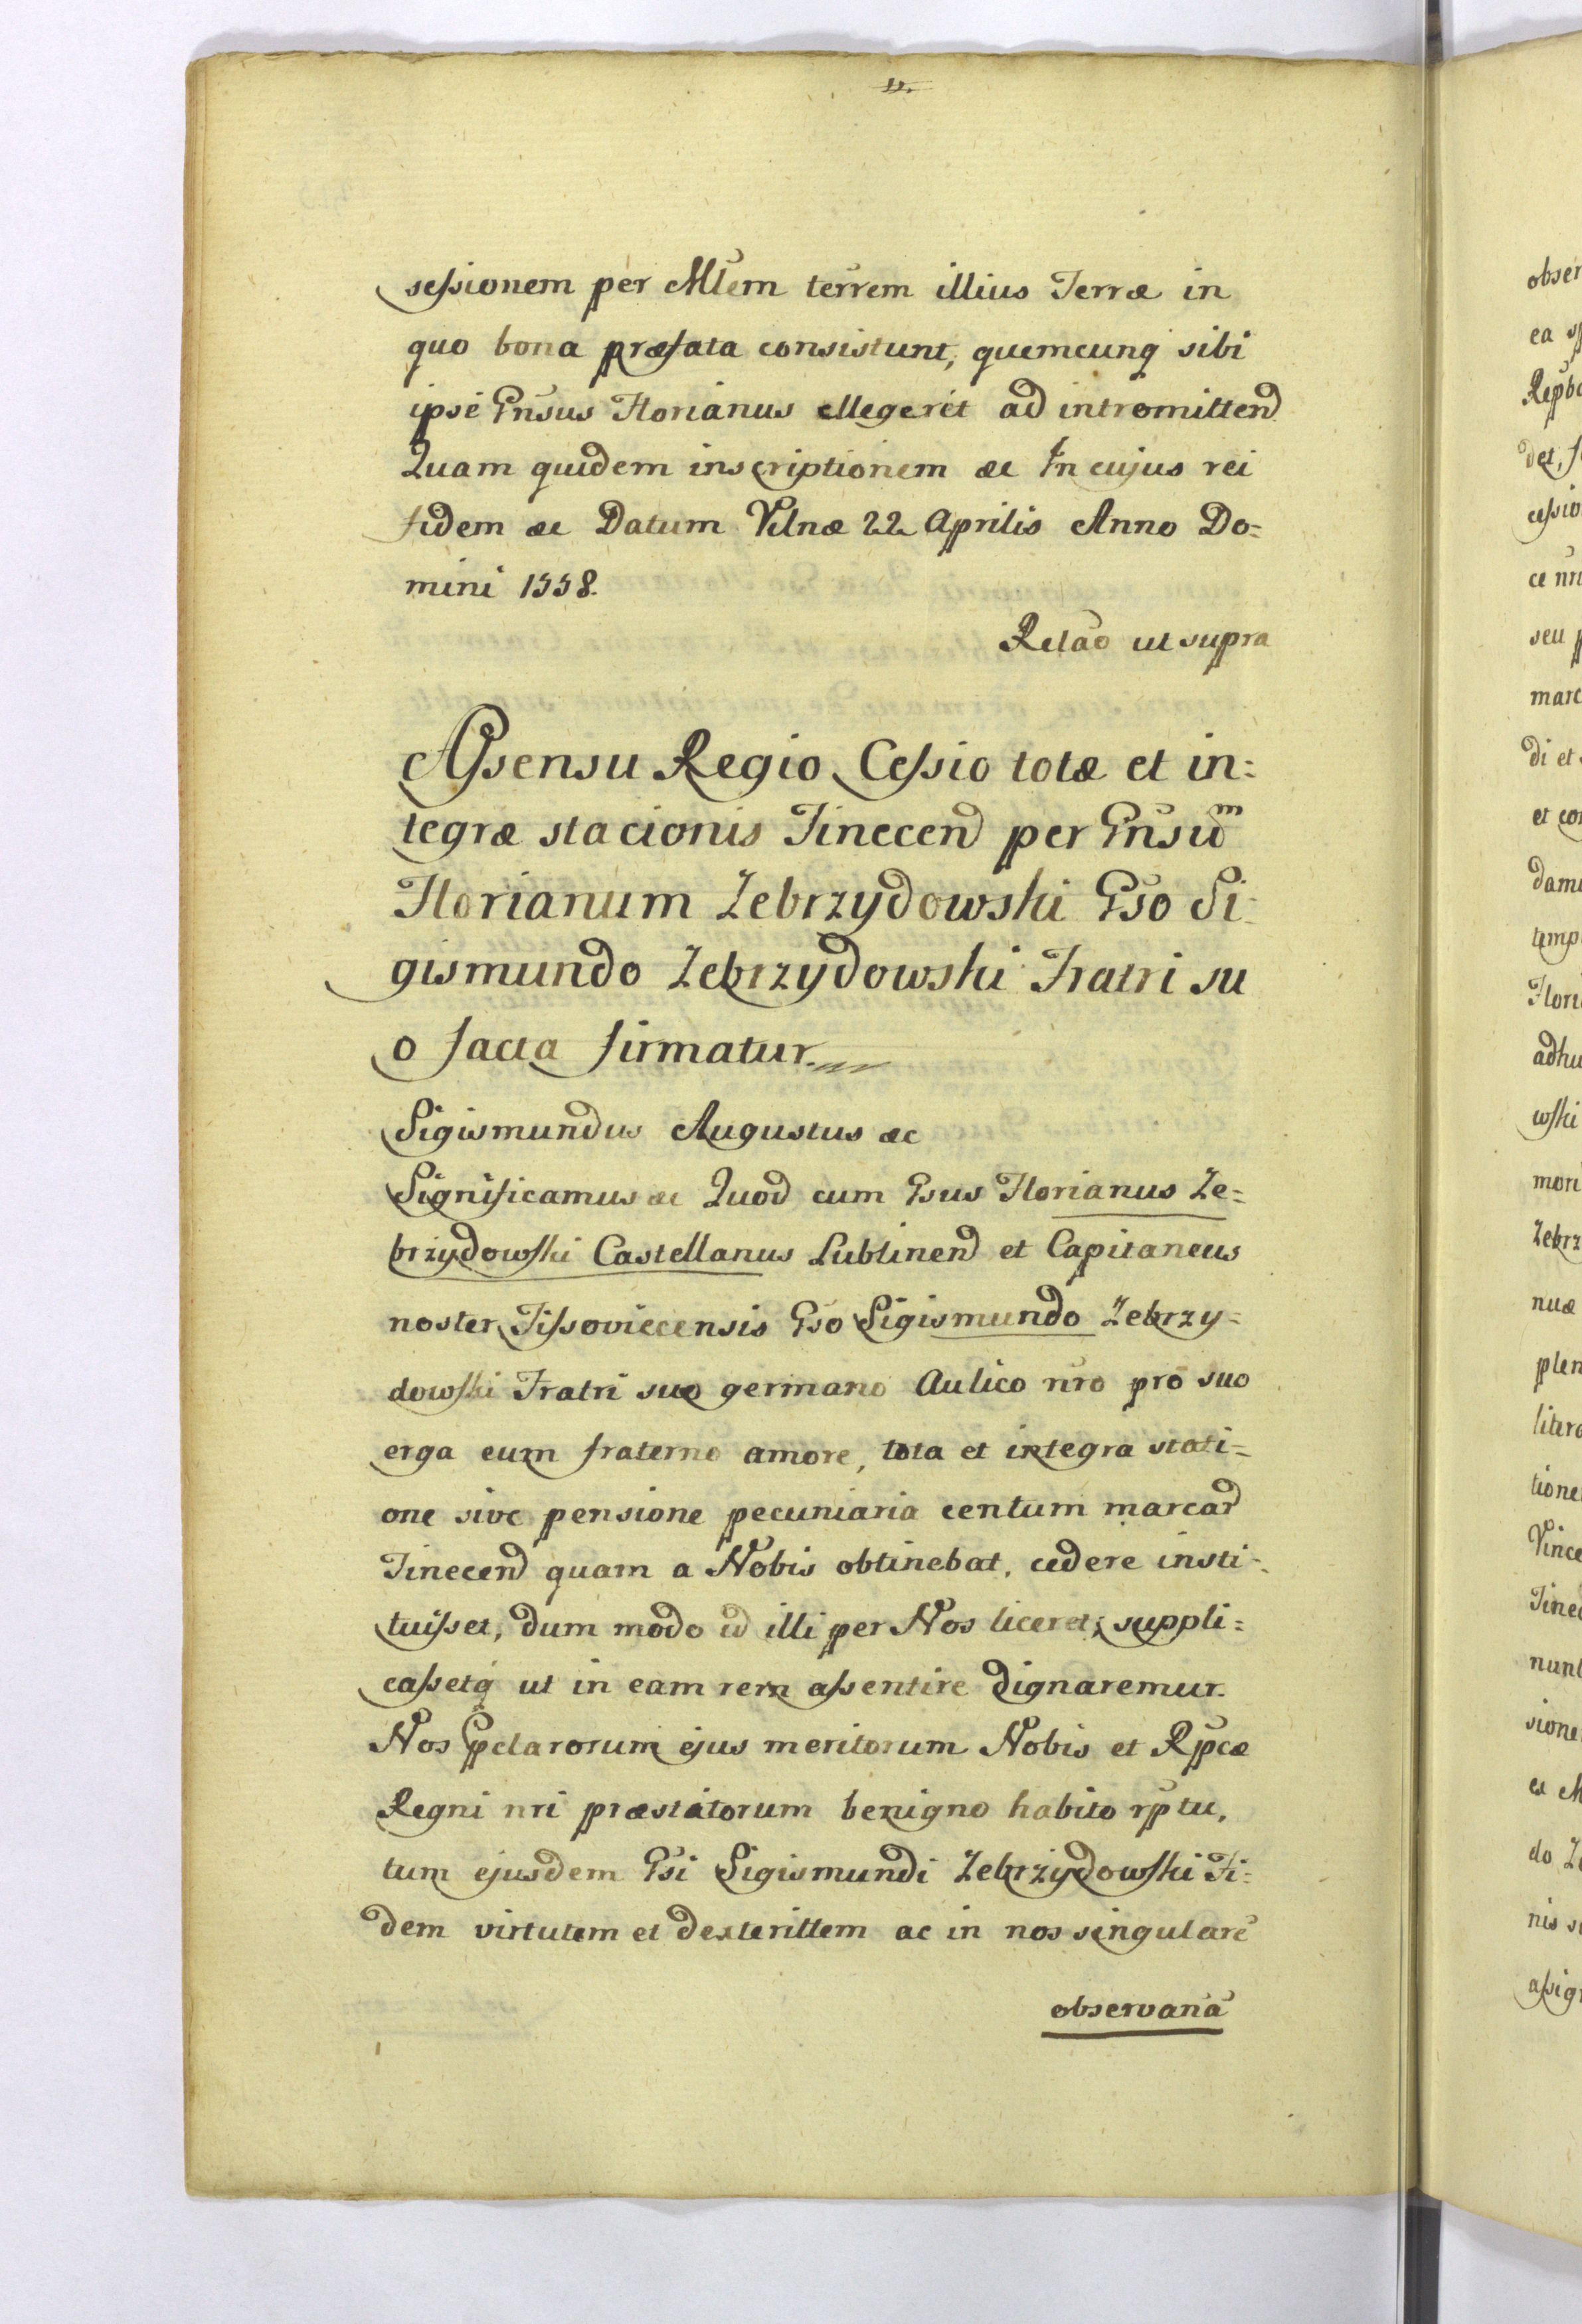 seſsionem per Mlem terrem illius Terræ in
quo bona præfata consistunt, quemcunq sibi
ipse Gnsus Florianus ellegeret ad intromittend
Quam quidem inscriptionem &c In cujus rei
fidem &c Datum Vilnæ 22 Aprilis Anno Do=
mini 1558.
Relao ut supra
Aſsensu Regio Ceſsio totæ et in=
tegræ stacionis Tinecen per Gnsum
Florianum Zebrzydowski Gso Si=
gismundo Zebrzydowski Fratri su
o facta firmatur.
Sigismundus Augustus &c
Significamus &c Quod cum Gsus Florianus Ze=
brzydowſki Castellanus Lublinen et Capitaneus
noster Tiſsoviecensis Gso Sigismundo Zebrzy=
dowſki Fratri suo germano Aulico nro pro suo
erga eum fraterno amore, tota et integra stati=
one sive pensione pecuniaria centum marcar
Tinecen quam a Nobis obtinebat, cedere insti=
tuiſset, dum modo id illi per Nos liceret; suppli=
caſsetq ut in eam rem aſsentire dignaremur.
Nos Pclarorum ejus meritorum Nobis et Rpcæ
Regni nri præstitorum benigno habito rptu,
tum ejusdem Gsi Sigismundi Zebrzydowſki Fi=
dem virtutem et dexterittem ac in nos singulare
observana
obser
ea
det,
ceſsio
ce nri
seu
marc
di et
et con
dam
temp
Flori
adhu
wſki
mori
Zebrz
nuæ
plen
litera
tione
Vince
Tinec
nunt
sione
do
aſsig